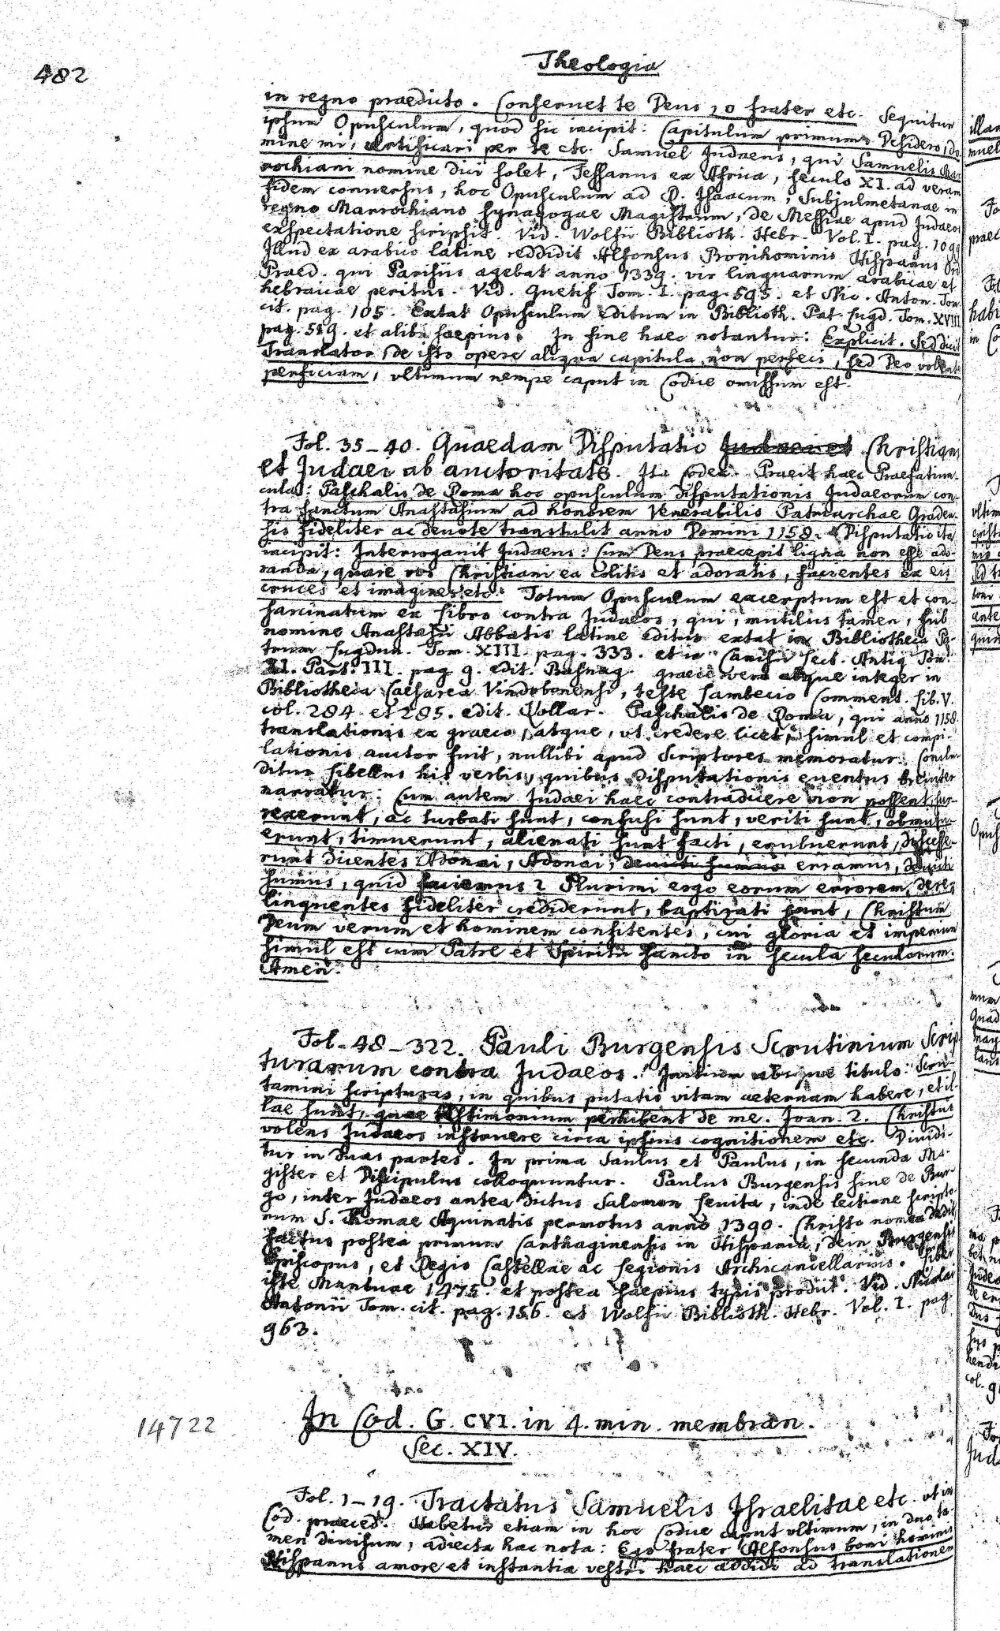 482
Theologia
in regno praedicto. Conservet te Deus, o frater etc. Sequitur
ipsum Opusculum, quod sic incipit: Capitulum primum. Desidero, do-
mine mi, certificari per te etc. Samuel Judaeus, qui Samuelis Mar-
rochiani nomine dici solet, Fessanus ex Africa, seculo XI. ad veram
fidem conversus, hoc Opusculum ad R. Isaacum, Subjulmetanae in
regno Marrochiano Synagogae Magistrum, de Messiae apud Judaeos
exspectatione scripsit. Vid. Wolfii Biblioth. Hebr. Vol. I. pag. 1099
Illud ex arabico latine reddidit Alfonsus Bonihominis Hispanus Ord.
Praed. qui Parisiis agebat anno 1339. vir linguarum arabicae et
hebraicae peritus. Vid. Quetif Tom. I. pag. 595. et Nic. Anton. Tom.
cit. pag. 105. Extat Opusculum editum in Biblioth. Pat. Lugd. Tom. XVIII
pag. 519. et alibi saepius. In fine haec notantur: Explicit. Sed dicit
Translator, de isto opere aliqua capitula non perfeci, sed Deo volente
perficiam, ultimum nempe caput in Codice omissum est.
Fol. 35-40. Quaedam Disputatio Christiani
et Judaei ab auctoritate. Ita Codex. Praeit haec Praefatiun-
cula: Paschalis de Roma hoc opusculum disputationis Judaeorum con-
tra sanctum Anastasium ad honorem Venerabilis Patriarchae Graden-
sis fideliter ac devote transtulit anno Domini 1158. Disputatio ita
incipit: Interrogavit Judaeus: Cum Deus praecepit ligna non esse ado-
randa, quare vos Christiani ea colitis et adoratis, facientes ex eis
cruces et imagines etc. Totum Opusculum excerptum est et con-
sarcinatum ex Libro contra Judaeos, qui, mutilus tamen, sub
nomine Anastasii Abbatis latine editus extat in Bibliotheca Pa-
trum Lugdun. Tom. XIII. pag. 333. et in Canisii Lect. Antiq. Tom.
XI. Part. III pag. 9. edit. Basnag. graece vero atque integer in
Bibliotheca Caesarea Vindobonensi, teste Lambecio Comment. Lib. V.
col. 284. et 285. edit. Kollar. Paschalis de Roma, qui anno 1158
translationis ex graeco, atque, ut credere licet, simul et compi-
lationis auctor fuit, nullibi apud Scriptores memoratur. Conclu-
ditur Libellus his verbis, quibus Disputationis eventus breviter
narratur: Cum autem Judaei haec contradicere non possent, sur-
rexerunt, ac turbati sunt, confusi sunt, veriti sunt, obmutu-
erunt, timuerunt, alienati sunt facti, erubuerunt, discesse-
runt dicentes Adonai, Adonai, erramus, devicti
sumus, quid faciemus? Plurimi ergo eorum errorem dere-
linquentes fideliter crediderunt, baptizati sunt, Christum
Deum verum et hominem confitentes, cui gloria et imperium
simul est cum Patre et Spiritu sancto in secula seculorum.
Amen.
Fol. 48-322. Pauli Burgensis Scrutinium Scrip-
turarum contra Judaeos. Initium absque titulo: Scru-
tamini scripturas, in quibus putatis vitam aeternam habere, et il-
lae sunt, quae testimonium perhibent de me. Joan. 2. Christus
volens Judaeos instruere circa ipsius cognitionem etc. Dividi-
tur in duas partes. In prima Saulus et Paulus, in secunda Ma-
gister et Discipulus colloquuntur. Paulus Burgensis sine de Bur-
go, inter Judaeos antea dictus Salomon Levita, inde lectione scripto-
rum S. Thomae Aquinatis permotus anno 1390. Christo nomen dedit
factus postea primum Carthaginensis in Hispania, dein Burgensis
Episcopus, et Regis Castellae ac Legionis Archicancellarius. Liber
iste Mantuae 1475. et postea saepius typis prodiit. Vid. Nicolai
Antonii Tom. cit. pag. 156. et Wolfii Biblioth. Hebr. Vol. I. pag.
963.
14722
In Cod. G. CVI. in 4. min. membran.
Sec. XIV.
Fol. 1-19. Tractatus Samuelis Israelitae etc. ut in
Cod. praeced. Habetur etiam in hoc Codice caput ultimum, in duo ta-
men divisum, adiecta hac nota: Ego frater Alfonsus boni hominis
Hispanus amore et instantia vestri haec addidi ad translationem